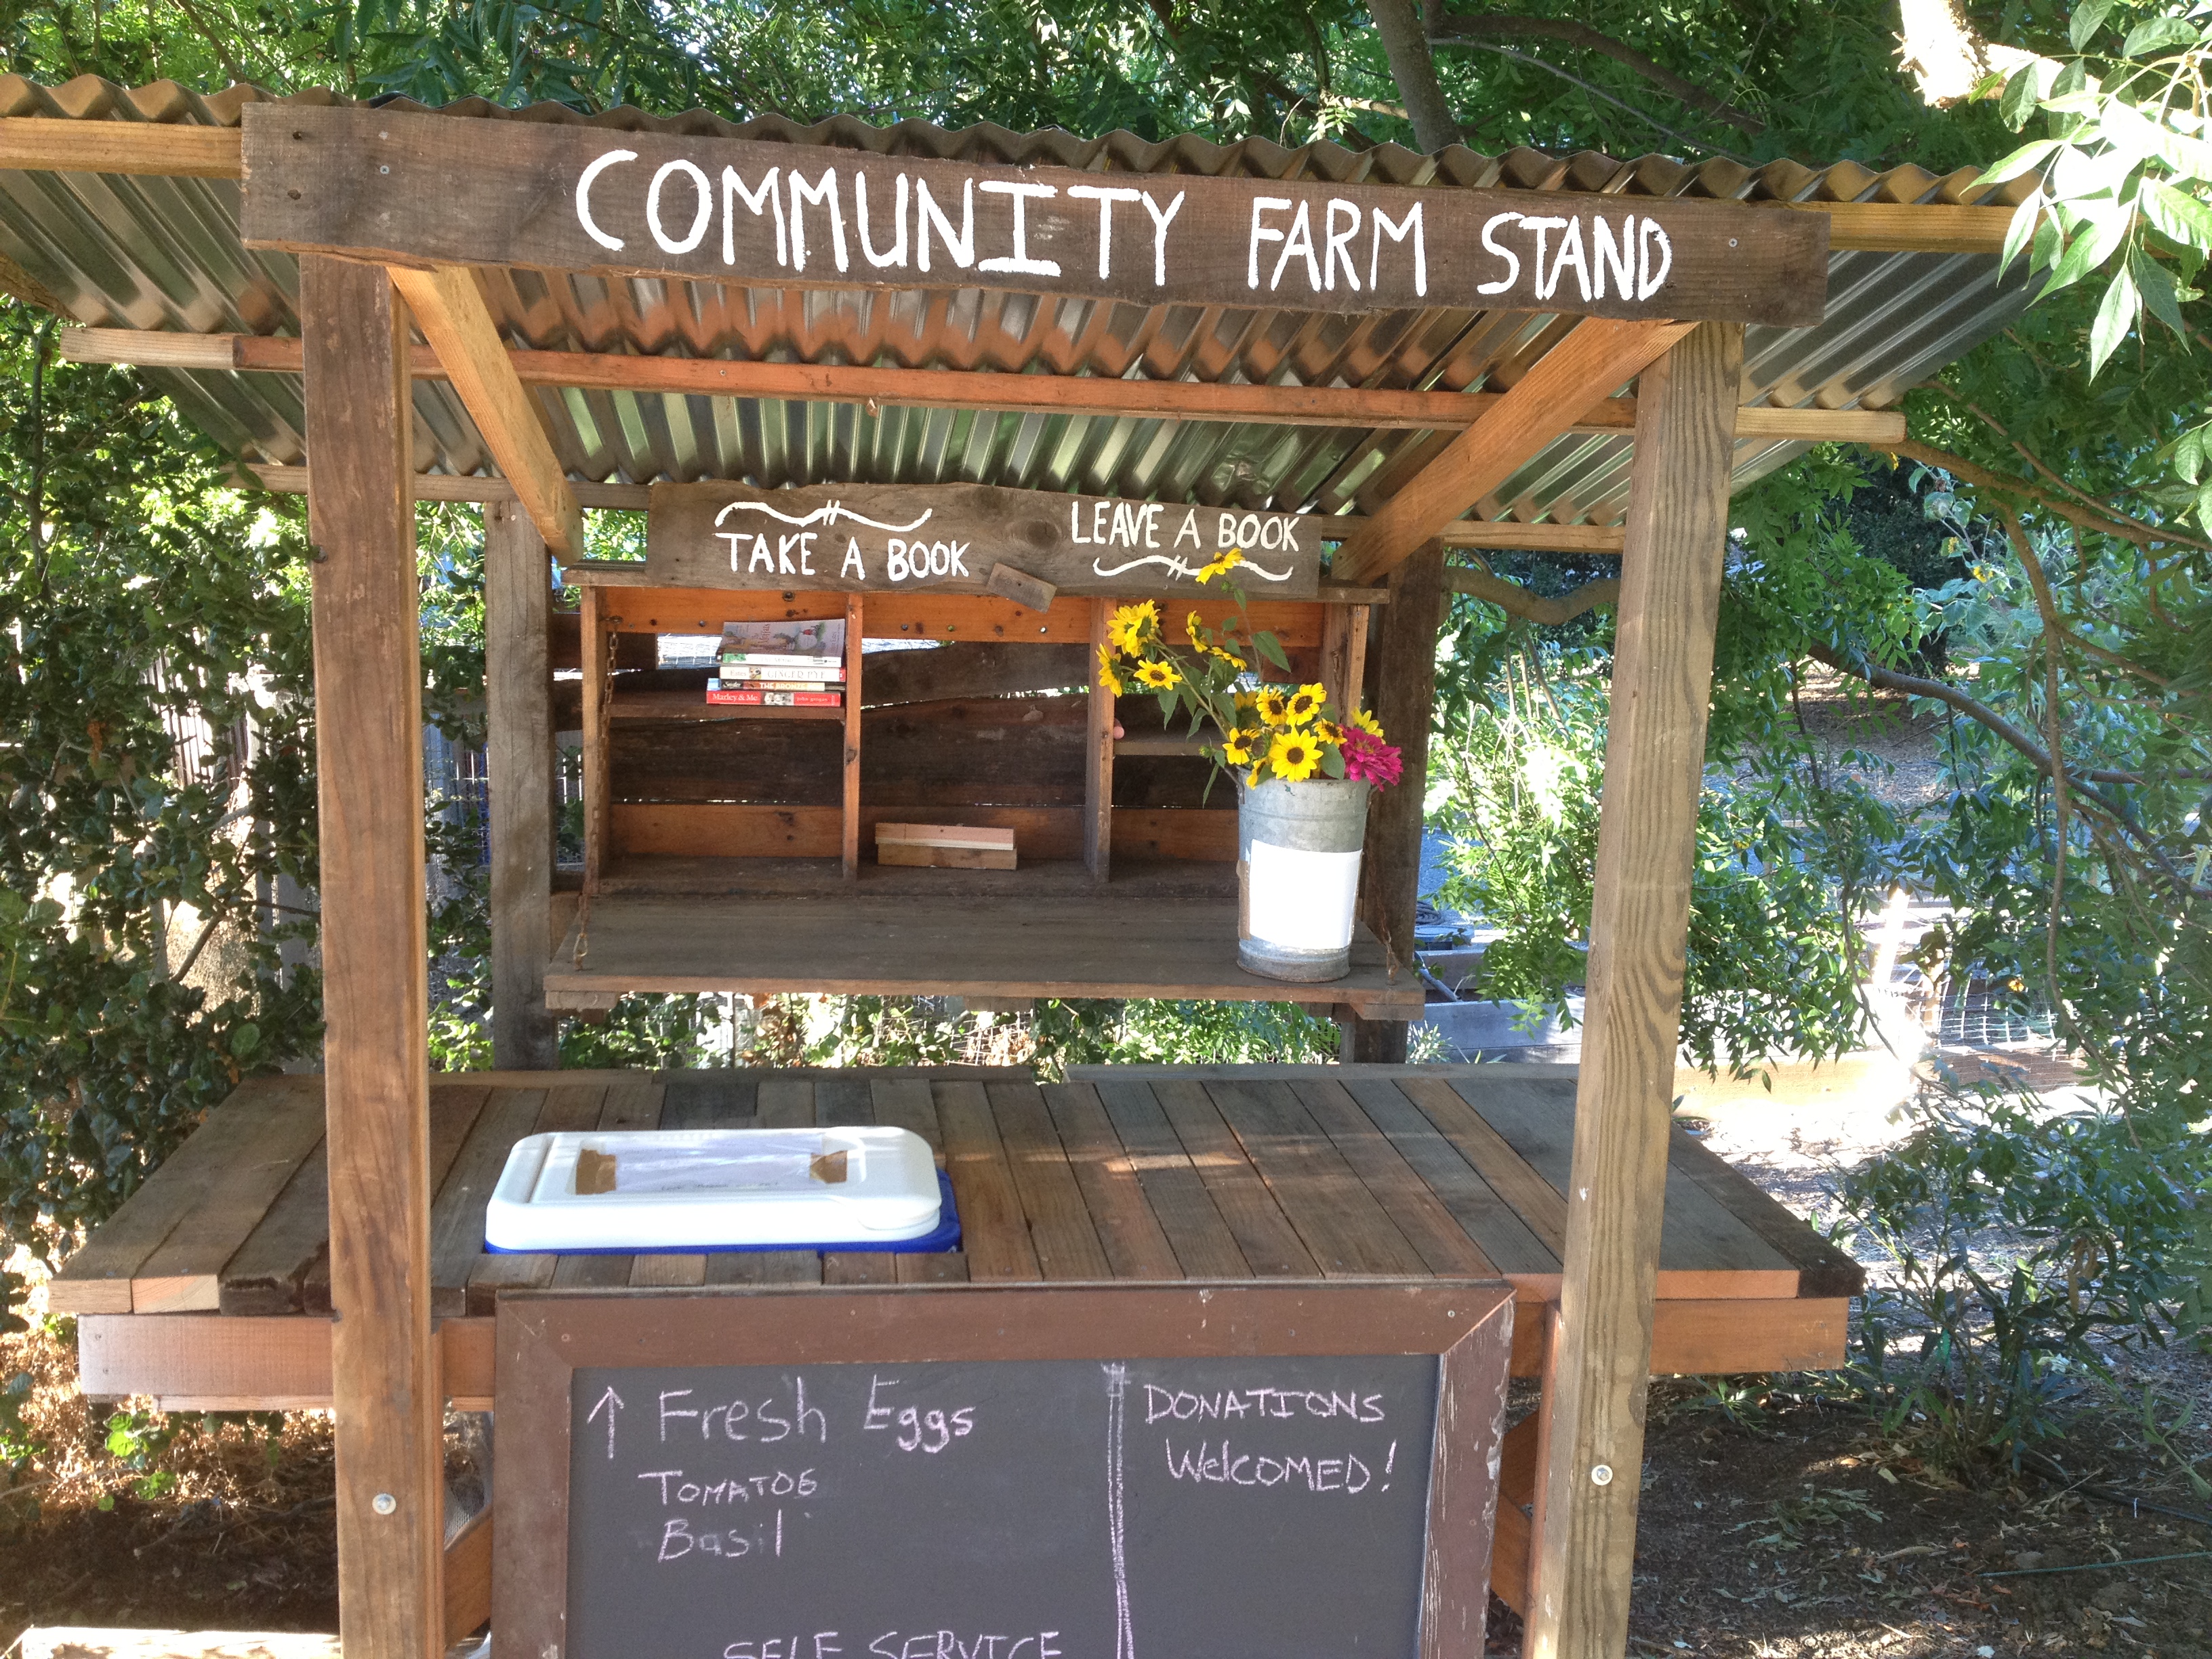 COMMUNITY FARM STAND
TAKE A BOOK
LEAVE A BOOK
GINGER PYE
THE BRONZE
Marley & Me
↑ Fresh Eggs
TOMATOE
Basil
SELF SERVICE
DONATIONS
WelCOMED!